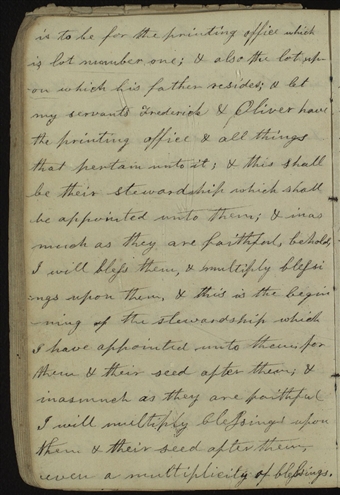 is to be for the printing office which
is lot number one; & also the lot up-
on which his father resides; & let
my servants Frederick & Oliver have
the printing office & all things
that pertain unto it; & this shall
be their stewardship which shall
be appointed unto them; & inas
much as they are faithful, behold,
I will bless them, & multiply blessi
-ngs upon them, & this is the begin
-ning of the stewardship which
I have appointed unto them for
them & their seed after them; &
inasmuch as they are faithful
I will multiply blessings upon
them & their seed after them,
even a multiplicity of blessings.